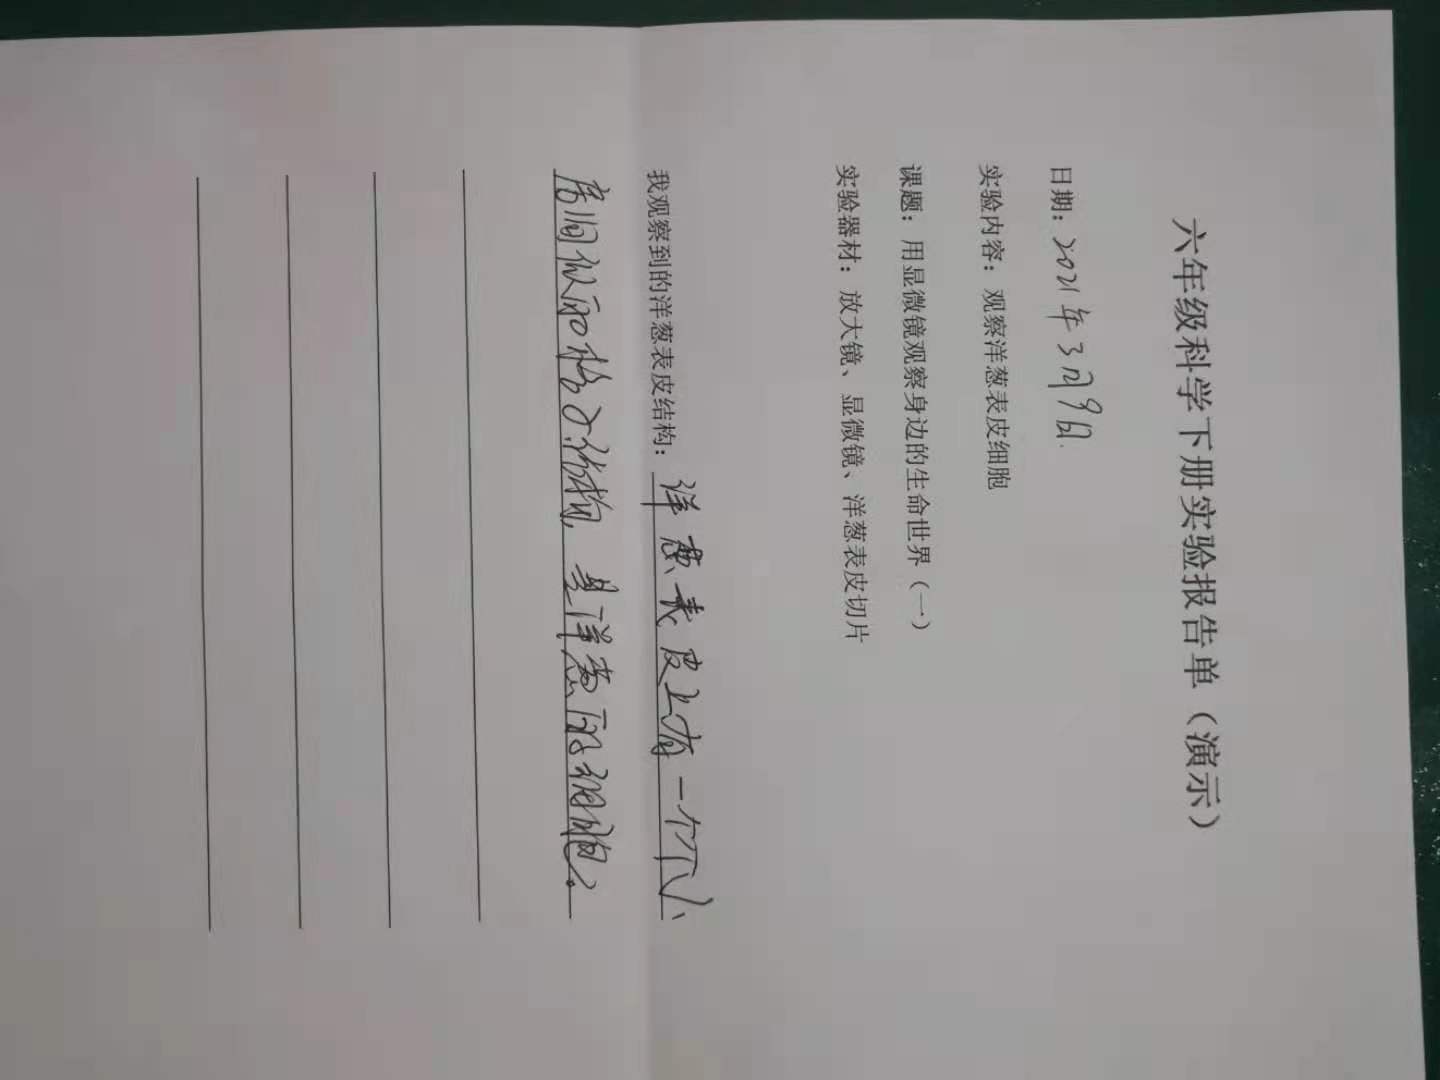 六年级科学下册实验报告单（演示）
日期：2021年3月9日.
实验内容：观察洋葱表皮细胞
课题：用显微镜观察身边的生命世界（一）
实验器材：放大镜、显微镜、洋葱表皮切片
我观察到的洋葱表皮结构：洋葱表皮上有一个个小
房间似的格子结构，是洋葱的细胞。